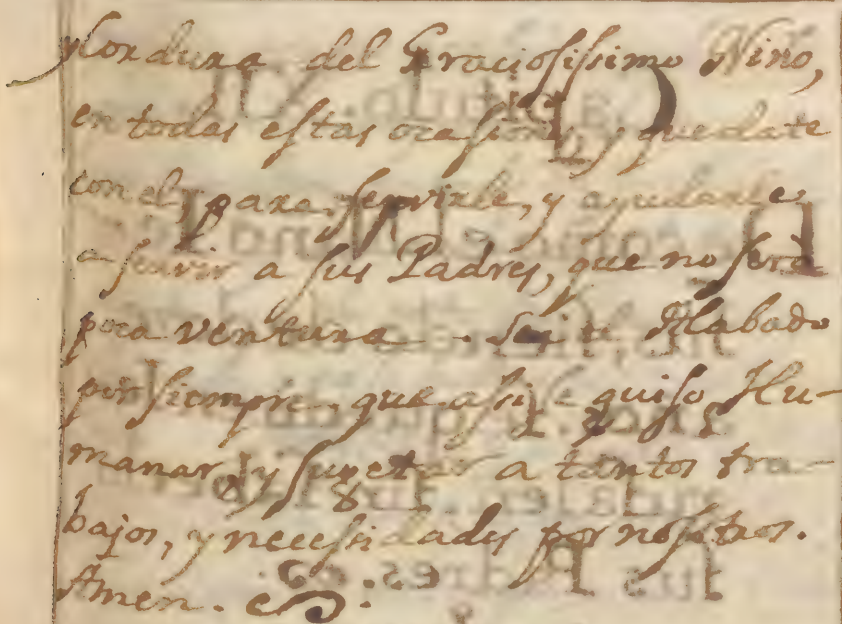 y Cordura del Graciosissimo Niño,
en todas estas ocasiones, y quedate
con el, para servirle, y ayudarle
a servir a sus Padres, que no sera
poca ventura. Sea el Alabado
por siempre, que assi se quiso Hu-
manar, y sugetar a tantos tra-
bajos, y necessidades por nosotros.
Amen.